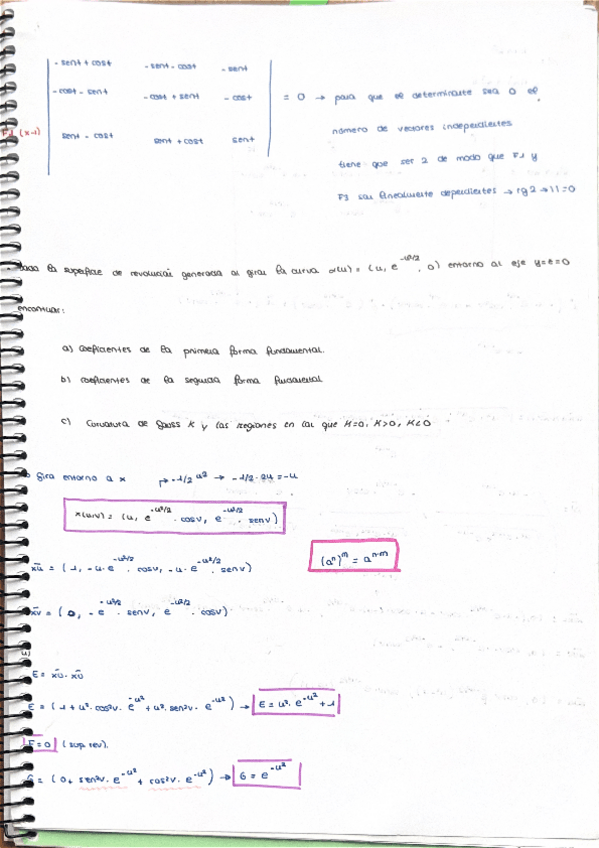 - sent + cost   - sent - cost   - sent
- cost - sent   - cost + sent   - cost   = 0 → para que el determinante sea 0 el
número de vectores independientes
F1 (x-1)   sent - cost   sent + cost   sent
tiene que ser 2 de modo que F1 y
F3 son linealmente dependientes → rg 2 → | | = 0
Dada la superficie de revolución generada al girar la curva α(u) = (u, e^-u²/2, 0) entorno al eje y=z=0
encontrar:
a) Coeficientes de la primera forma fundamental.
b) coeficientes de la segunda forma fundamental
c) Curvatura de Gauss K y las regiones en las que K=0, K>0, K<0
gira entorno a x   → -1/2 u² → -1/2 · 2u = -u
x(u,v) = (u, e^-u²/2 · cosv, e^-u²/2 · senv)
(aⁿ)ᵐ = a^n·m
xu = (1, -u·e^-u²/2 · cosv, -u·e^-u²/2 · senv)
xv = (0, -e^-u²/2 · senv, e^-u²/2 · cosv)
E = xu · xu
E = (1 + u² · cos²v · e^-u² + u² · sen²v · e^-u²) → E = u² · e^-u² + 1
F = 0 (sup. rev).
G = (0 + sen²v · e^-u² + cos²v · e^-u²) → G = e^-u²